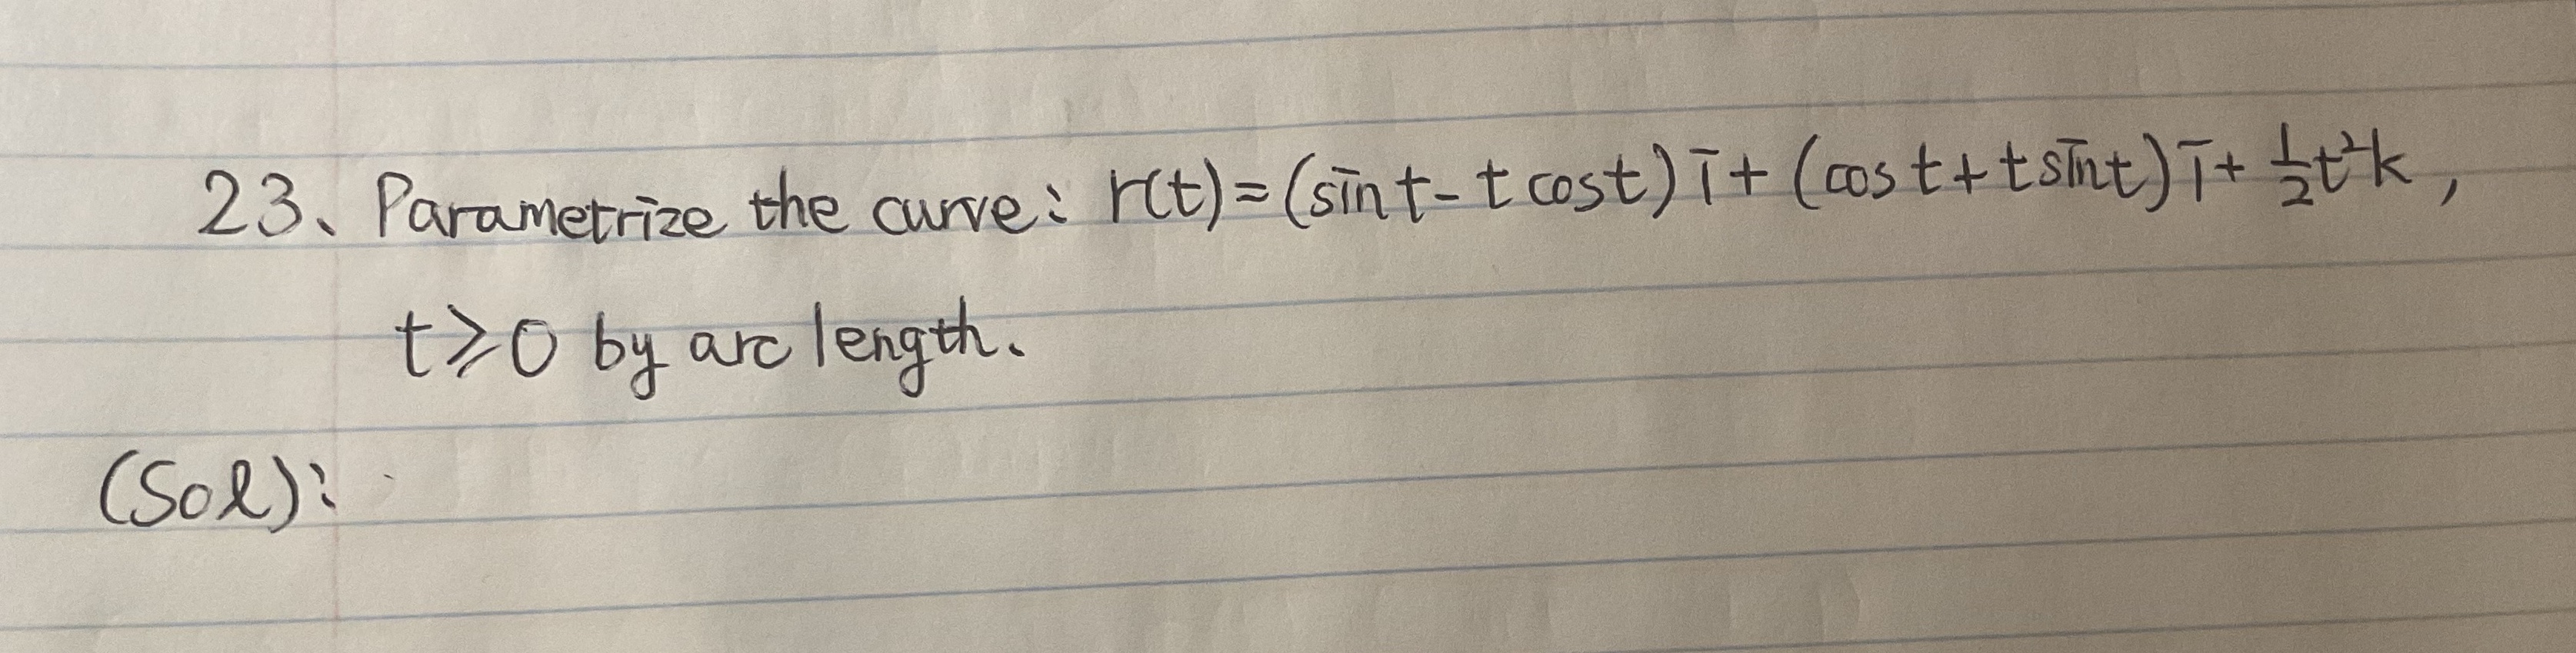 23、Parametrize the curve: r(t)=(sin t - t cos t) i + (cos t + t sin t) i + 1/2 t²k,
t ⩾ 0 by arc length.
(Sol):